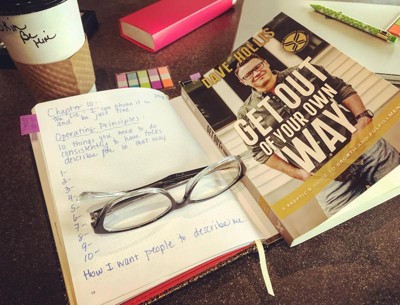 Chapter 10:
be just fine
Operating Principles
10 things you need to do
consistently to have folks
describe you in that way
1-
2-
3-
4-
5-
6-
7-
8-
9-
10-
How I want people to describe me
DAVE HOLLIS
GET OUT
OF YOUR OWN
WAY
A SKEPTIC'S GUIDE TO GROWTH AND FULFILLMENT